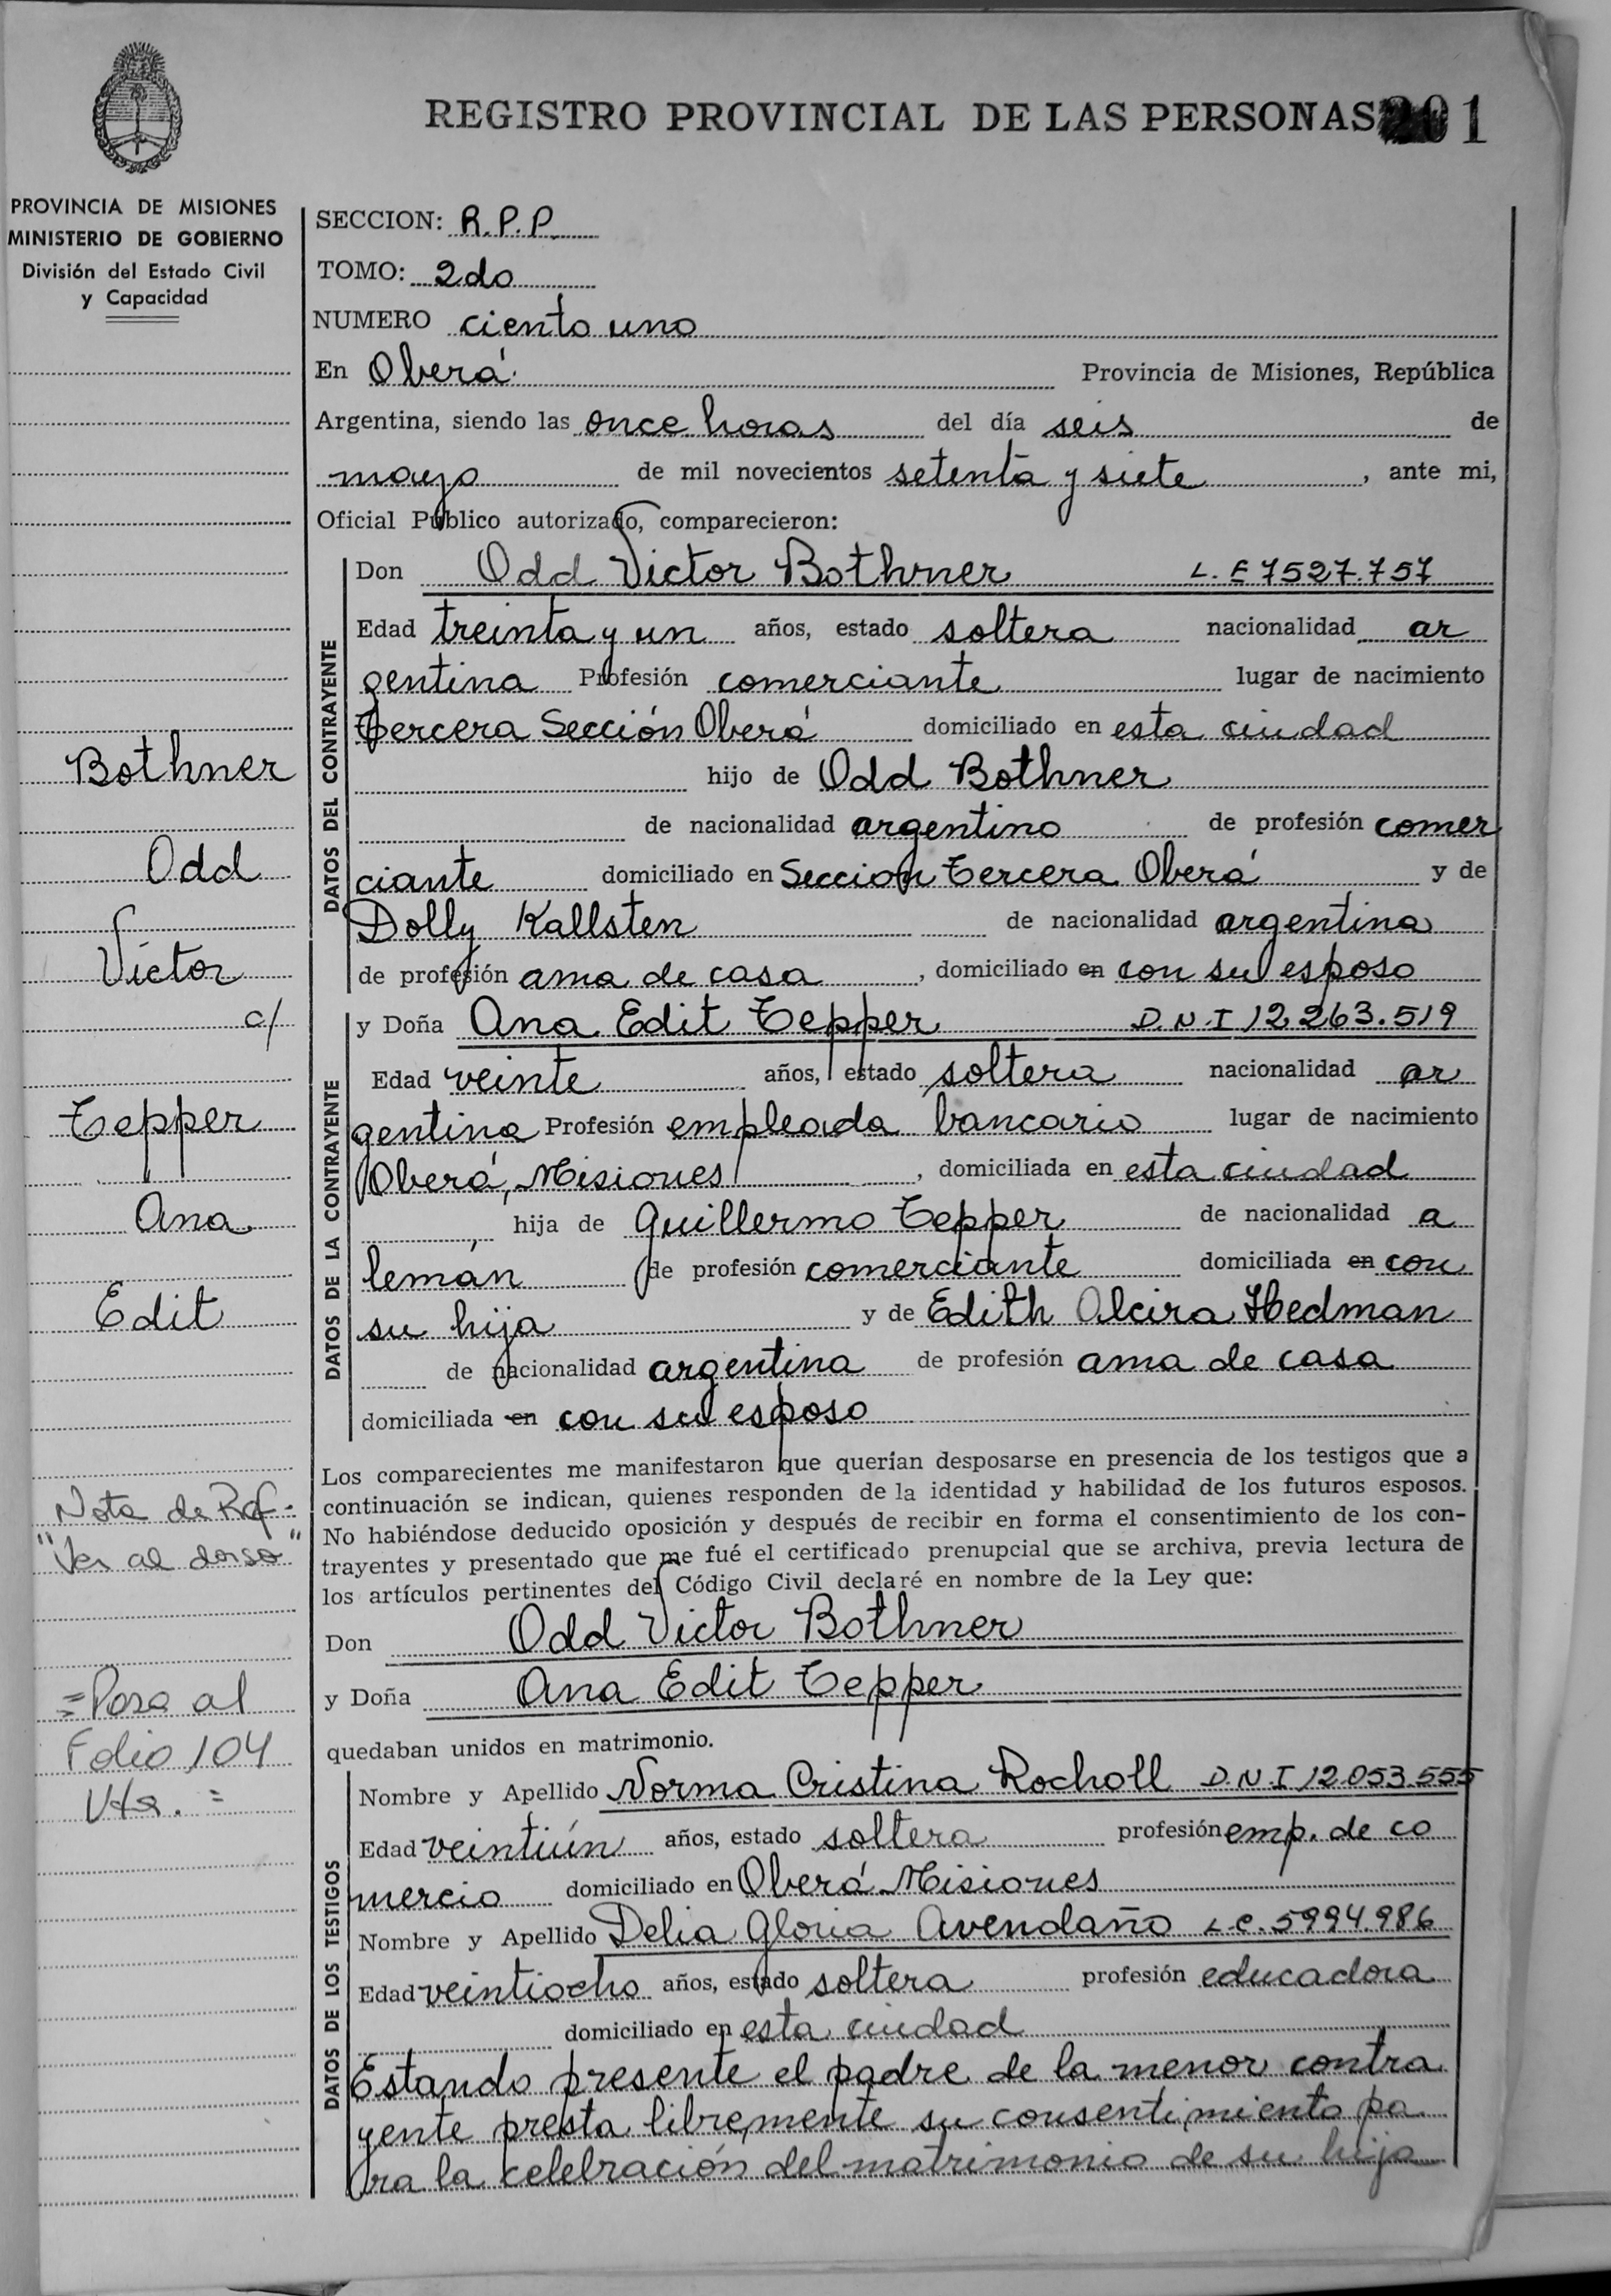 REGISTRO PROVINCIAL DE LAS PERSONAS 201
PROVINCIA DE MISIONES
MINISTERIO DE GOBIERNO
División del Estado Civil
y Capacidad
SECCION: R.P.P.
TOMO: 2do
NUMERO ciento uno
En Oberá Provincia de Misiones, República
Argentina, siendo las once horas del día seis de
mayo de mil novecientos setenta y siete, ante mi,
Oficial Público autorizado, comparecieron:
DATOS DEL CONTRAYENTE
Don Odd Victor Bothner L.E 7527.757
Edad treinta y un años, estado soltera nacionalidad ar
gentina Profesión comerciante lugar de nacimiento
Tercera Sección Oberá domiciliado en esta ciudad
hijo de Odd Bothner
de nacionalidad argentino de profesión comer
ciante domiciliado en Seccion Tercera Oberá y de
Dolly Kallsten de nacionalidad argentina
de profesión ama de casa, domiciliado en con su esposo
DATOS DE LA CONTRAYENTE
y Doña Ana Edit Tepper D.N.I 12.263.519
Edad veinte años, estado soltera nacionalidad ar
gentina Profesión empleada bancario lugar de nacimiento
Oberá, Misiones, domiciliada en esta ciudad
, hija de Guillermo Tepper de nacionalidad a
lemán de profesión comerciante domiciliada en con
su hija y de Edith Alcira Hedman
de nacionalidad argentina de profesión ama de casa
domiciliada en con su esposo
Los comparecientes me manifestaron que querían desposarse en presencia de los testigos que a
continuación se indican, quienes responden de la identidad y habilidad de los futuros esposos.
No habiéndose deducido oposición y después de recibir en forma el consentimiento de los con-
trayentes y presentado que me fué el certificado prenupcial que se archiva, previa lectura de
los artículos pertinentes del Código Civil declaré en nombre de la Ley que:
Don Odd Victor Bothner
y Doña Ana Edit Tepper
quedaban unidos en matrimonio.
DATOS DE LOS TESTIGOS
Nombre y Apellido Norma Cristina Rocholl D.N.I 12.053.555
Edad veintiún años, estado soltera profesión emp. de co
mercio domiciliado en Oberá Misiones
Nombre y Apellido Delia Gloria Avendaño L.C. 5994.986
Edad veintiocho años, estado soltera profesión educadora
domiciliado en esta ciudad
Estando presente el padre de la menor contra
yente presta libremente su consentimiento pa
ra la celebración del matrimonio de su hija
Bothner
Odd
Victor
c/
Tepper
Ana
Edit
Nota de Ref.
"Ver al dorso"
= Pasa al
Folio 104
Vta. =